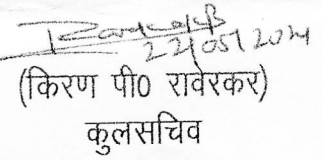 22/05/2024
(किरण पी0 रावेरकर)
कुलसचिव